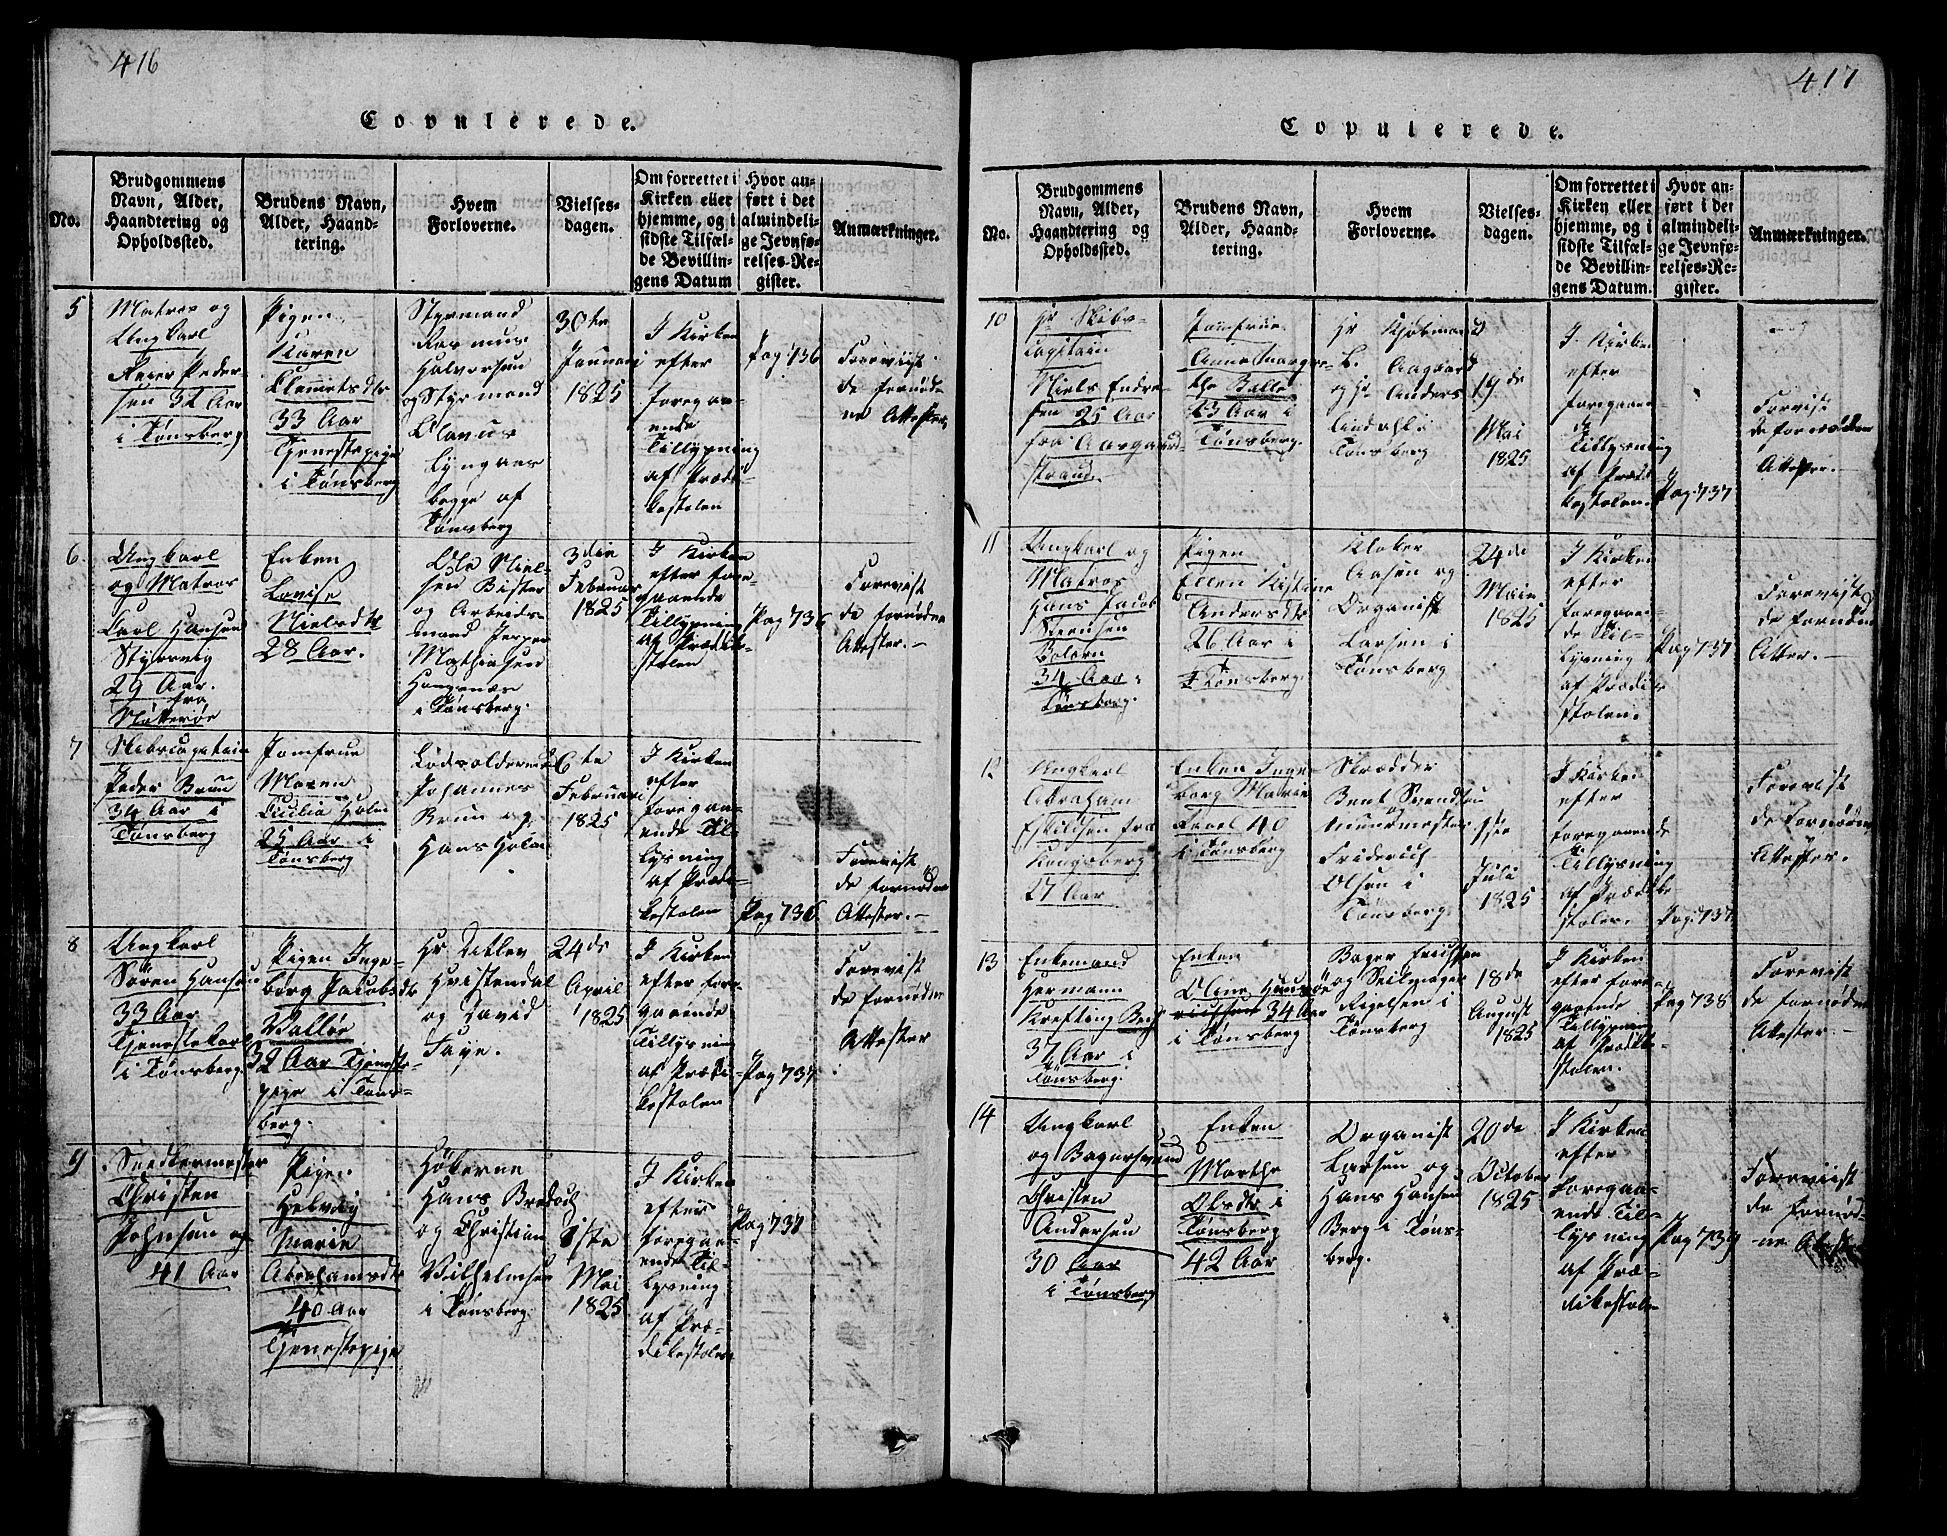 416
Copulerede.
No.
Brudgommens
Navn, Alder,
Haandtering og
Opholdssted.
Brudens Navn,
Alder, Haand-
tering.
Hvem
Forloverne.
Vielses-
dagen.
Om forrettet i
Kirken eller
hjemme, og i
sidste Tilfæl-
de Bevillin-
gens Datum
Hvor an-
ført i det
almindeli-
ge Jevnfø-
relses-Re-
gister.
Anmærkninger.
5
Matros og
Ungkarl
Peder-
sen 32 Aar
i Tønsberg
Pigen
Karen
Clemetsdtr
33 Aar
Tjenestepige
i Tønsberg
Styrmand
Rasmus
Halvorsen
og Styrmand
Olavus
Lyngaas
begge af
Tønsberg
30te
Januari
1825
I Kirken
efter
foregaa-
ende
Tillysning
af Prædi-
kestolen
Pag 736
Foreviist
de fornød-
ne Attester
6
Ungkarl
og Matros
Carl Hansen
29 Aar.
fra
Nøtterøe
Enken
Lovise
Nielsdtr
28 Aar.
Ole Niel-
sen
og Arbeids-
mand Jesper
Mathiasen
i Tønsberg.
3die
Februar
1825
I Kirken
efter fore-
gaaende
Tillysning
af Prædike-
stolen
Pag 736
Forevist
de fornødne
Attester.-
7
Skibscapitain
Peder Bruu
34 Aar i
Tønsberg
Jomfrue
Maren
Cicilia Holm
25 Aar i
Tønsberg
Lodsolderma
Johannes
Bruu og
Hans Holm
6te
Februari
1825
I Kirken
efter
foregaa-
ende Til-
lysning
af Prædi-
kestolen
Pag 736
Forevist
de fornødne
Attester.-
8
Ungkarl
Søren Hansen
33 Aar
Tjenestekarl
i Tønsberg.
Pigen Inge-
borg Jacobsdtr
Walløe
32 Aar Tjeneste-
pige i Tøns-
berg.
Hr Ditlev
Hvistendal
og David
Faye.
24de
April
1825
I Kirken
efter fore-
gaaende
Tillysning
af Prædi-
kestolen
Pag 737
Forevist
de fornødne
Attester
9
Snedkermester
Christen
Johnsen og
41 Aar
Pigen
Helvig
Marie
Abrahamsdtr
40 Aar
Tjenestepige
Høkerne
Hans Bredog
og Christian
Vilhelmsen
i Tønsberg
1ste
Mai
1825
I Kirken
efter
foregaa-
ende Til-
lysning
af Præ-
dikestolen
Pag 737
417
Copulerede.
No.
Brudgommens
Navn, Alder,
Haandtering og
Opholdssted.
Brudens Navn,
Alder, Haand-
tering.
Hvem
Forloverne.
Vielses-
dagen.
Om forrettet i
Kirken eller
hjemme, og i
sidste Tilfæl-
de Bevillin-
gens Datum.
Hvor an-
ført i det
almindeli-
ge Jevnfø-
relses-Re-
gister.
Anmærkninger.
10
Hr Skibs-
capitain
Niels Endre-
sen 25 Aar
fra Aasgaard-
strand.
Jomfrue
Anna Margre-
the Balle
23 Aar i
Tønsberg.
Hr Kjøbmand
L. Aagaard
og Hr Anders
Lindahl i
Tønsberg
19de
Mai
1825
I Kirken
efter
foregaaen-
de
Tillysning
af Prædi-
kestolen.
Pag. 737
Forevist
de fornødne
Attester.-
11
Ungkarl og
Matros
Hans Jacob
Sørensen
Bolærn
34 Aar i
Tønsberg.
Pigen
Ellen Kistine
Andersdtr
26 Aar i
Tønsberg.
Klokker
Aasen og
Organist
Larsen i
Tønsberg
24de
Maie
1825
I Kirken
efter
foregaaen-
de Til-
lysning
af Prædike-
stolen.
Pag 737
Forevist
de fornødne
Atter.-
12
Ungkarl
Abraham
Eskildsen fra
Kongsberg
27 Aar
Enken Inge-
borg Marie
40
i Tønsberg
Skrædder
Bent Svendsen
Friderich
Olsen i
Tønsberg
1ste
Juli
1825
I Kirken
efter
foregaaende
Tillysning
af Prædike-
stolen.
Pag. 737
Forevist
de fornødne
Attester.
13
Enkemand
Hermann
Krefting
37 Aar i
Tønsberg.
Enken
Oline
34 Aar
i Tønsberg
Bager
og
i
Tønsberg
18de
August
1825
I Kirken
efter fore-
gaaende
Tillysning
af Prædike-
stolen.
Pag 738
Forevist
de fornødne
Attester.-
14
Ungkarl
og Bagersvend
Christen
Andersen
30 Aar
i Tønsberg
Enken
Marthe
Olsdtr i
Tønsberg
42 Aar
Organist
Larsen og
Hans Hansen
Berg i Tøns-
berg.
20de
October
1825
I Kirken
efter
foregaa-
ende Til-
lysning
af Præ-
dikestolen
Pag 739
Foreviist
de fornød-
ne